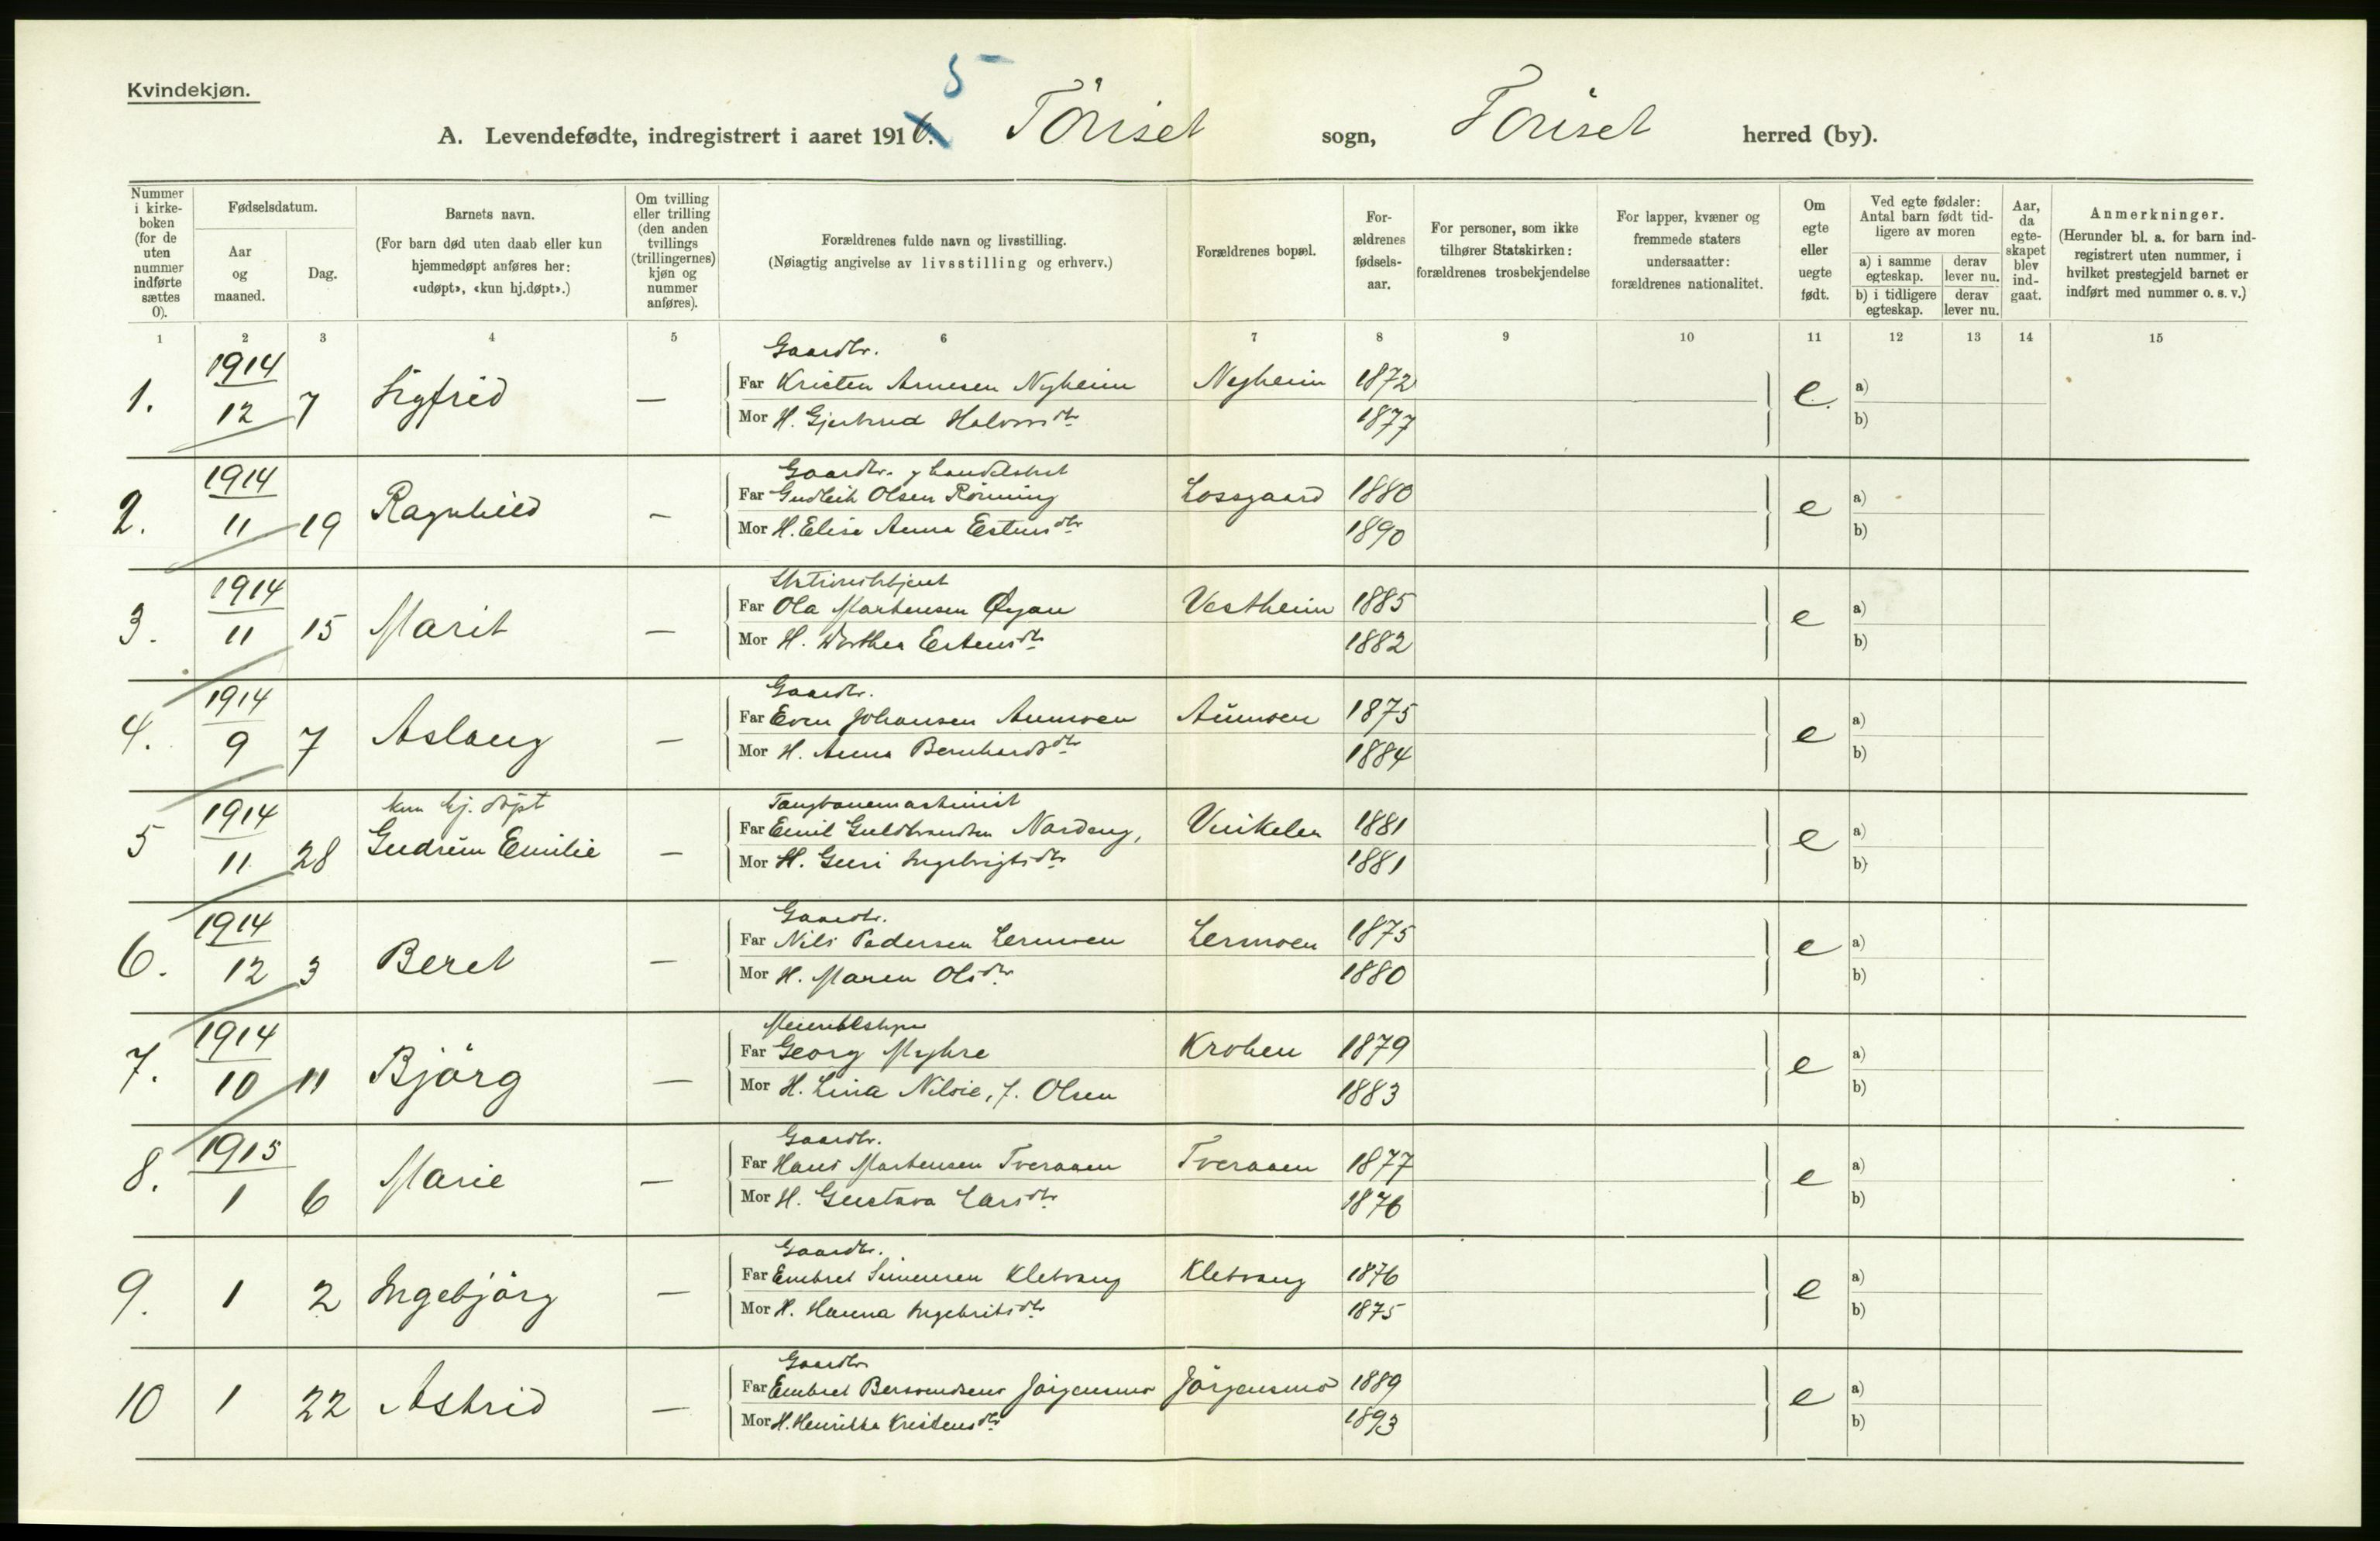 Kvindekjøn.
5
A. Levendefødte, indregistrert i aaret 1916. Töriset sogn, Töriset herred (by).
Nummer i kirke-boken (for de uten nummer indførte sættes 0).
Fødselsdatum.
Aar og maaned.
Dag.
Barnets navn.
(For barn død uten daab eller kun hjemmedøpt anføres her: «udøpt», «kun hj.døpt».)
Om tvilling eller trilling (den anden tvillings (trillingernes) kjøn og nummer anføres).
Forældrenes fulde navn og livsstilling.
(Nøiagtig angivelse av livsstilling og erhverv.)
Forældrenes bopæl.
For-ældrenes fødsels-aar.
For personer, som ikke tilhører Statskirken: forældrenes trosbekjendelse
For lapper, kvæner og fremmede staters undersaatter: forældrenes nationalitet.
Om egte eller uegte født.
Ved egte fødsler: Antal barn født tid-ligere av moren
a) i samme egteskap.
derav lever nu.
b) i tidligere egteskap.
derav lever nu.
Aar, da egte-skapet blev ind-gaat.
Anmerkninger.
(Herunder bl. a. for barn ind-registrert uten nummer, i hvilket prestegjeld barnet er indført med nummer o. s. v.)
1 2 3 4 5 6 7 8 9 10 11 12 13 14 15
Gaardbr.
1. 1914 12 7 Sigfrid — Far Kristen Arnesen Nyheim Nyheim 1872 e. a)
Mor H. Gjertrud Halvorsdtr. 1877 b)
Gaardbr. og handelsbet
2. 1914 11 19 Ragnhild — Far Gudleik Olsen Rönning Lossgaard 1880 e a)
Mor H. Elise Anna Estensdtr 1890 b)
Stationsbetjent
3. 1914 11 15 Marit — Far Ola Martensen Øyan Vestheim 1885 e a)
Mor H. Dorthea Estensdtr. 1882 b)
Gaardbr.
4. 1914 9 7 Aslaug — Far Even Johansen Aumoen Aumoen 1875 e a)
Mor H. Anna Bernhardsdtr. 1884 b)
kun hj. döpt
Taugbanemaskinist
5 1914 11 28 Gudrun Emilie — Far Emil Guldbrandsen Nordeng, Vinkelen 1881 e a)
Mor H. Guri Ingebrigtsdtr. 1881 b)
Gaardbr.
6. 1914 12 3 Beret — Far Nils Pedersen Lermoen Lermoen 1875 e a)
Mor H. Maren Olsdtr. 1880 b)
Meieribestyrer
7. 1914 10 11 Björg — Far Georg Myhre Kroken 1879 e a)
Mor H. Lina Nilsie, f. Olsen 1883 b)
Gaardbr.
8. 1915 1 6 Marie — Far Hans Martensen Tveraaen Tveraaen 1877 e a)
Mor H. Gustava Larsdtr. 1876 b)
Gaardbr.
9. 1 2 Ingebjörg — Far Embret Simensen Kletvang Kletvang 1876 e a)
Mor H. Hanna Ingebritsdtr. 1875 b)
Gaardbr
10 1 22 Astrid — Far Embret Bersvendsen Jörgensmo Jörgensmo 1889 e a)
Mor H. Henrikka Kristensdtr. 1893 b)